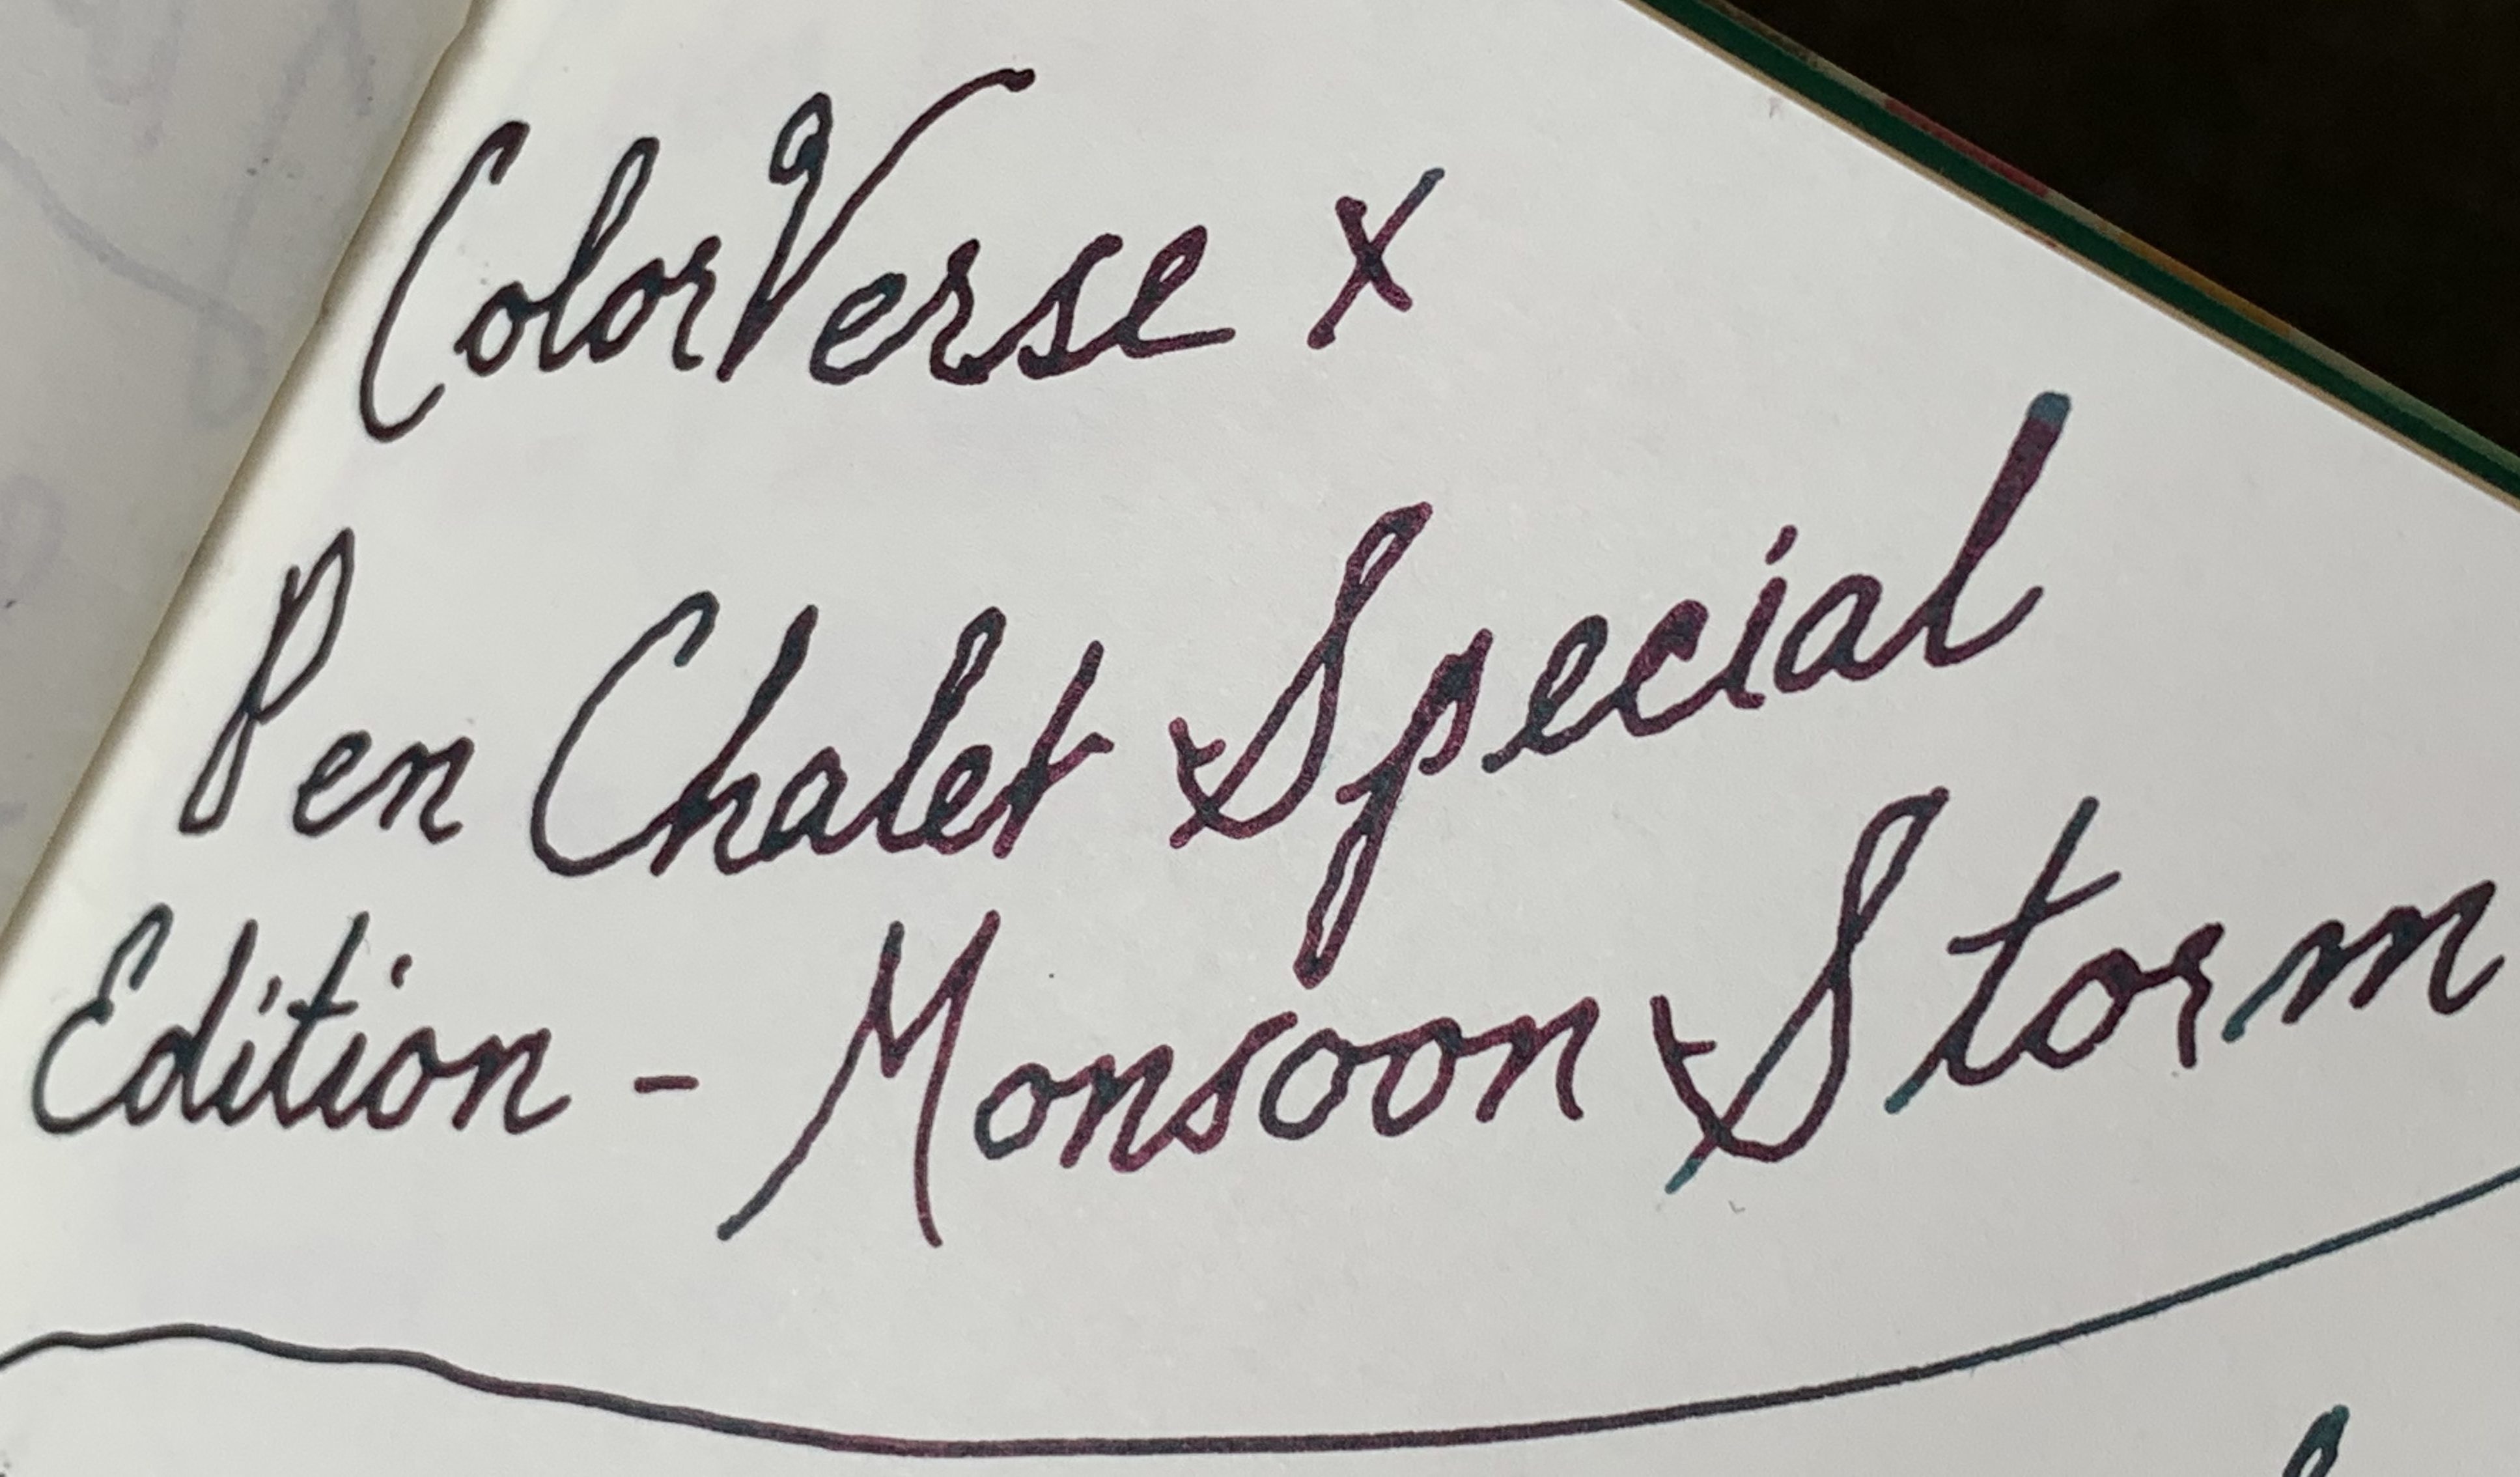 ColorVerse x
Pen Chalet Special
Edition - Monsoon Storm